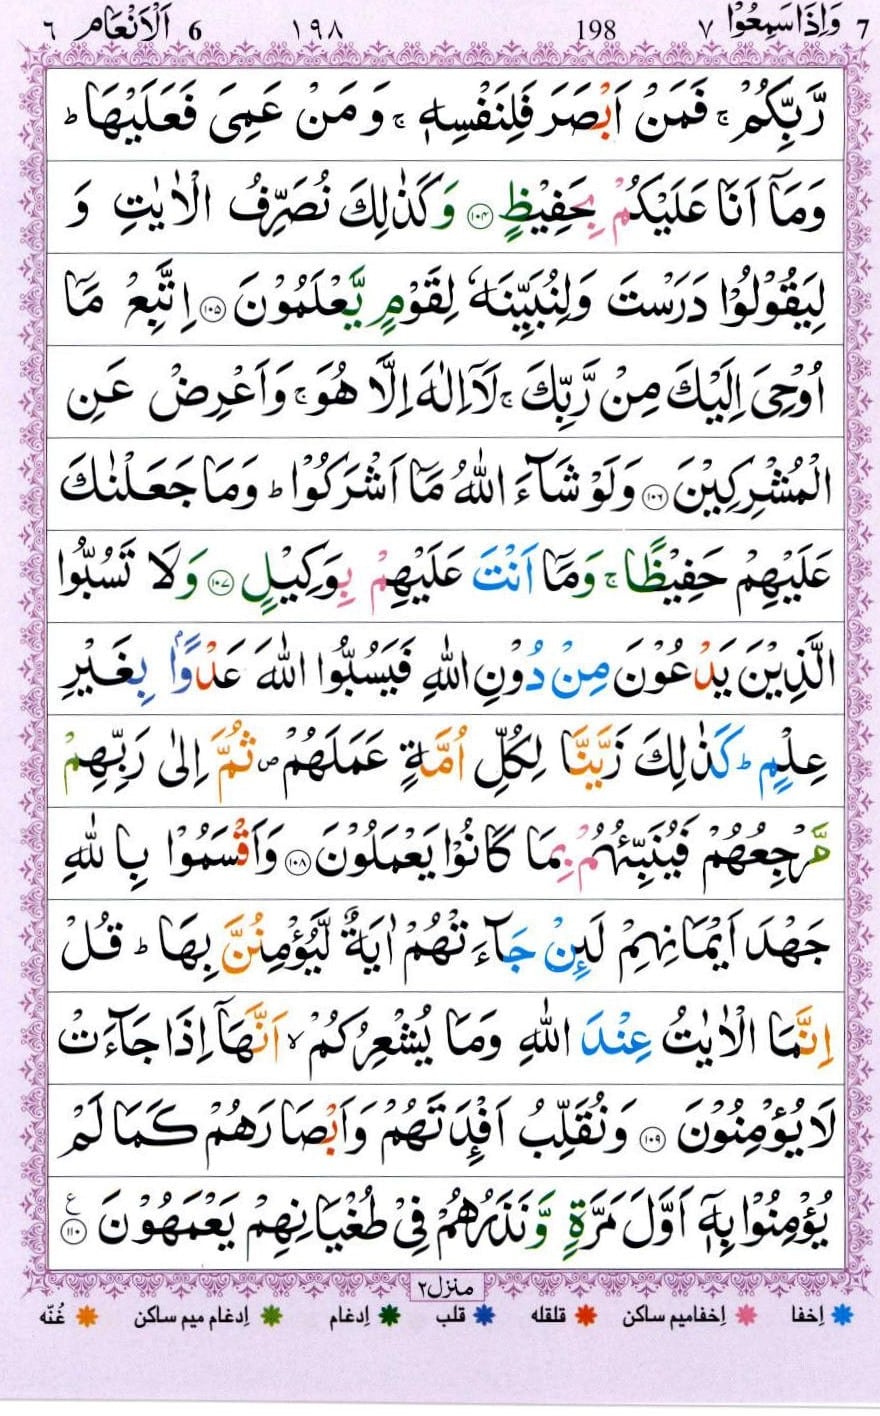 7 وَاِذَا سَمِعُوْا ٧ 198 ١٩٨ 6 اَلْاَنْعَام ٦
رَّبِّكُمْ ۚ فَمَنْ اَبْصَرَ فَلِنَفْسِهٖ ۚ وَ مَنْ عَمِیَ فَعَلَیْهَا ؕ
وَمَاۤ اَنَا عَلَیْكُمْ بِحَفِیْظٍ ﴿۱۰۴﴾ وَكَذٰلِكَ نُصَرِّفُ الْاٰیٰتِ وَ
لِیَقُوْلُوْا دَرَسْتَ وَلِنُبَیِّنَهٗ لِقَوْمٍ یَّعْلَمُوْنَ ﴿۱۰۵﴾ اِتَّبِعْ مَاۤ
اُوْحِیَ اِلَیْكَ مِنْ رَّبِّكَ ۚ لَاۤ اِلٰهَ اِلَّا هُوَ ۚ وَاَعْرِضْ عَنِ
الْمُشْرِكِیْنَ ﴿۱۰۶﴾ وَلَوْ شَآءَ اللّٰهُ مَاۤ اَشْرَكُوْا ؕ وَمَا جَعَلْنٰكَ
عَلَیْهِمْ حَفِیْظًا ۚ وَمَاۤ اَنْتَ عَلَیْهِمْ بِوَكِیْلٍ ﴿۱۰۷﴾ وَلَا تَسُبُّوا
الَّذِیْنَ یَدْعُوْنَ مِنْ دُوْنِ اللّٰهِ فَیَسُبُّوا اللّٰهَ عَدْوًۢا بِغَیْرِ
عِلْمٍ ؕ كَذٰلِكَ زَیَّنَّا لِكُلِّ اُمَّةٍ عَمَلَهُمْ ۪ ثُمَّ اِلٰی رَبِّهِمْ
مَّرْجِعُهُمْ فَیُنَبِّئُهُمْ بِمَا كَانُوْا یَعْمَلُوْنَ ﴿۱۰۸﴾ وَاَقْسَمُوْا بِاللّٰهِ
جَهْدَ اَیْمَانِهِمْ لَىِٕنْ جَآءَتْهُمْ اٰیَةٌ لَّیُؤْمِنُنَّ بِهَا ؕ قُلْ
اِنَّمَا الْاٰیٰتُ عِنْدَ اللّٰهِ وَمَا یُشْعِرُكُمْ ۙ اَنَّهَاۤ اِذَا جَآءَتْ
لَا یُؤْمِنُوْنَ ﴿۱۰۹﴾ وَنُقَلِّبُ اَفْـِٕدَتَهُمْ وَاَبْصَارَهُمْ كَمَا لَمْ
یُؤْمِنُوْا بِهٖۤ اَوَّلَ مَرَّةٍ وَّنَذَرُهُمْ فِیْ طُغْیَانِهِمْ یَعْمَهُوْنَ ﴿۱۱۰﴾ ع
منزل۲
اِخفا اِخفامیم ساکن قلقله قلب اِدغام اِدغام میم ساکن غُنّه